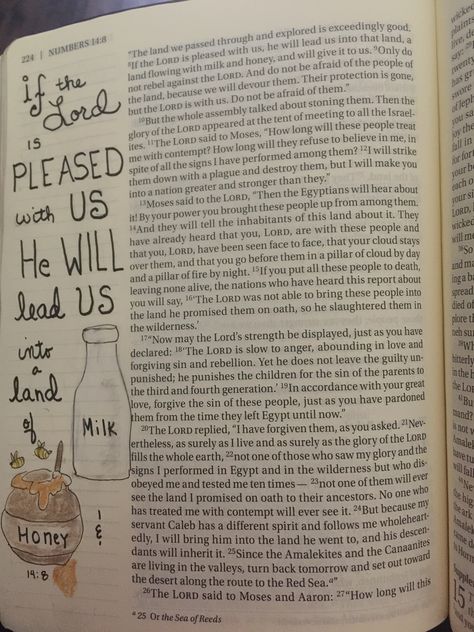 224 | NUMBERS 14:8
if the
Lord
is
PLEASED
with US
He WILL
lead US
into
a
land
of
Milk
&
Honey
14:8
"The land we passed through and explored is exceedingly good.
8"If the LORD is pleased with us, he will lead us into that land, a
land flowing with milk and honey, and will give it to us. 9Only do
not rebel against the LORD. And do not be afraid of the people of
the land, because we will devour them. Their protection is gone,
but the LORD is with us. Do not be afraid of them."
10But the whole assembly talked about stoning them. Then the
glory of the LORD appeared at the tent of meeting to all the Israel-
ites. 11The LORD said to Moses, "How long will these people treat
me with contempt? How long will they refuse to believe in me, in
spite of all the signs I have performed among them? 12I will strike
them down with a plague and destroy them, but I will make you
into a nation greater and stronger than they."
13Moses said to the LORD, "Then the Egyptians will hear about
it! By your power you brought these people up from among them.
14And they will tell the inhabitants of this land about it. They
have already heard that you, LORD, are with these people and
that you, LORD, have been seen face to face, that your cloud stays
over them, and that you go before them in a pillar of cloud by day
and a pillar of fire by night. 15If you put all these people to death,
leaving none alive, the nations who have heard this report about
you will say, 16'The LORD was not able to bring these people into
the land he promised them on oath, so he slaughtered them in
the wilderness.'
17"Now may the Lord's strength be displayed, just as you have
declared: 18'The LORD is slow to anger, abounding in love and
forgiving sin and rebellion. Yet he does not leave the guilty un-
punished; he punishes the children for the sin of the parents to
the third and fourth generation.' 19In accordance with your great
love, forgive the sin of these people, just as you have pardoned
them from the time they left Egypt until now."
20The LORD replied, "I have forgiven them, as you asked. 21Nev-
ertheless, as surely as I live and as surely as the glory of the LORD
fills the whole earth, 22not one of those who saw my glory and the
signs I performed in Egypt and in the wilderness but who dis-
obeyed me and tested me ten times — 23not one of them will ever
see the land I promised on oath to their ancestors. No one who
has treated me with contempt will ever see it. 24But because my
servant Caleb has a different spirit and follows me wholeheart-
edly, I will bring him into the land he went to, and his descen-
dants will inherit it. 25Since the Amalekites and the Canaanites
are living in the valleys, turn back tomorrow and set out toward
the desert along the route to the Red Sea.a"
26The LORD said to Moses and Aaron: 27"How long will this
a 25 Or the Sea of Reeds